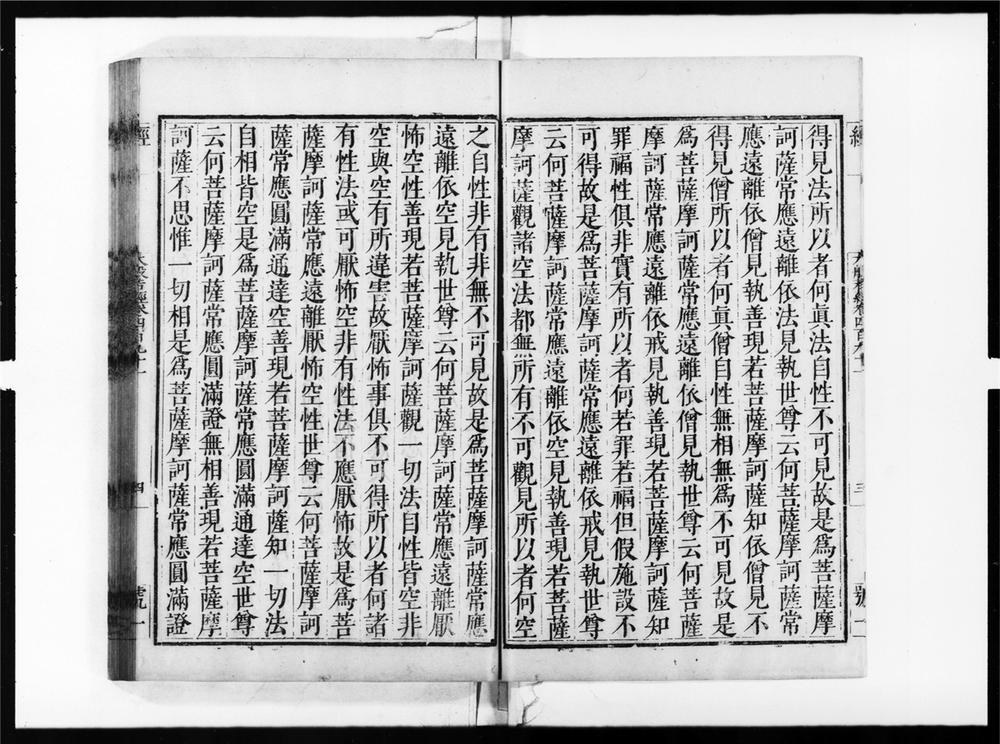 經
三
號
得見法所以者何眞法自性不可見故是爲菩薩摩
訶薩常應遠離依法見執世尊云何菩薩摩訶薩常
應遠離依僧見執善現若菩薩摩訶薩知依僧見不
得見僧所以者何眞僧自性無相無爲不可見故是
爲菩薩摩訶薩常應遠離依僧見執世尊云何菩薩
摩訶薩常應遠離依戒見執善現若菩薩摩訶薩知
罪福性俱非實有所以者何若罪若福但假施設不
可得故是爲菩薩摩訶薩常應遠離依戒見執世尊
云何菩薩摩訶薩常應遠離依空見執善現若菩薩
摩訶薩觀諸空法都無所有不可觀見所以者何空
之自性非有非無不可見故是爲菩薩摩訶薩常應
遠離依空見執世尊云何菩薩摩訶薩常應遠離厭
怖空性善現若菩薩摩訶薩觀一切法自性皆空非
空與空有所違害故厭怖事俱不可得所以者何諸
有性法或可厭怖空非有性法不應厭怖故是爲菩
薩摩訶薩常應遠離厭怖空性世尊云何菩薩摩訶
薩常應圓滿通達空善現若菩薩摩訶薩知一切法
自相皆空是爲菩薩摩訶薩常應圓滿通達空世尊
云何菩薩摩訶薩常應圓滿證無相善現若菩薩摩
訶薩不思惟一切相是爲菩薩摩訶薩常應圓滿證
經
四
號一